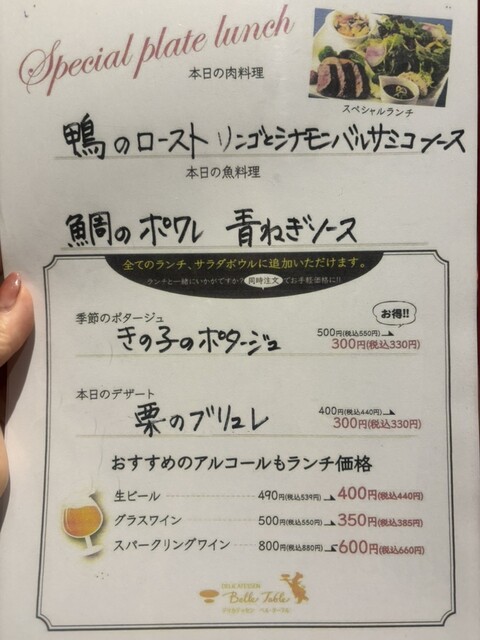 Special plate lunch
本日の肉料理
スペシャルランチ
鴨のロースト リンゴとシナモンバルサミコソース
本日の魚料理
鯛のポワレ 青ねぎソース
全てのランチ、サラダボウルに追加いただけます。
ランチと一緒にいかがですか？同時注文でお手軽価格に!!
お得!!
季節のポタージュ
きの子のポタージュ
500円(税込550円)
300円(税込330円)
本日のデザート
栗のブリュレ
400円(税込440円)
300円(税込330円)
おすすめのアルコールもランチ価格
生ビール 490円(税込539円) 400円(税込440円)
グラスワイン 500円(税込550円) 350円(税込385円)
スパークリングワイン 800円(税込880円) 600円(税込660円)
DELICATESSEN
Belle Table
デリカテッセン ベル・ターブル